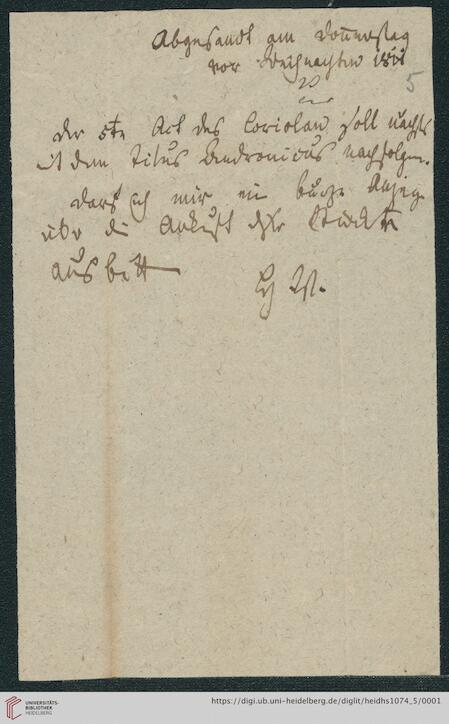 Abgesandt am Donnerstag
vor Weihnachten 1811
5
Der 5te Act des Coriolan soll nächstens
mit dem Titus Andronicus nachfolgen.
Darf ich mir ein kurze Anzeige
über die Ankunft dieser Stücke
ausbitten
UNIVERSITÄTS-
BIBLIOTHEK
HEIDELBERG
https://digi.ub.uni-heidelberg.de/diglit/heidhs1074_5/0001